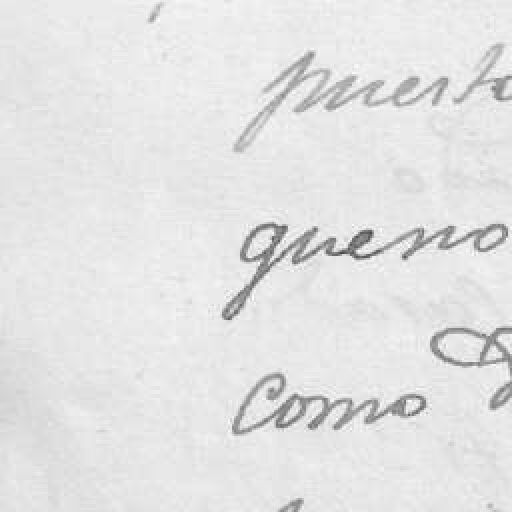 puesto
que no
como